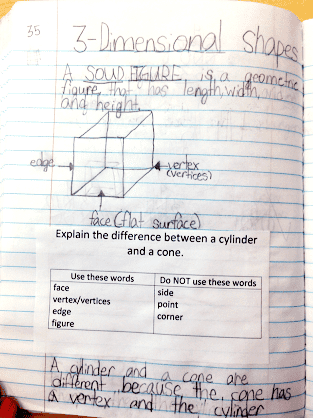 35
3-Dimensional Shapes
A SOLID FIGURE is a geometric
figure that has length, width,
and height.
edge
vertex
(vertices)
face (flat surface)
Explain the difference between a cylinder
and a cone.
Use these words
Do NOT use these words
face
side
vertex/vertices
point
edge
corner
figure
A cylinder and a cone are
different because the cone has
a vertex and the cylinder